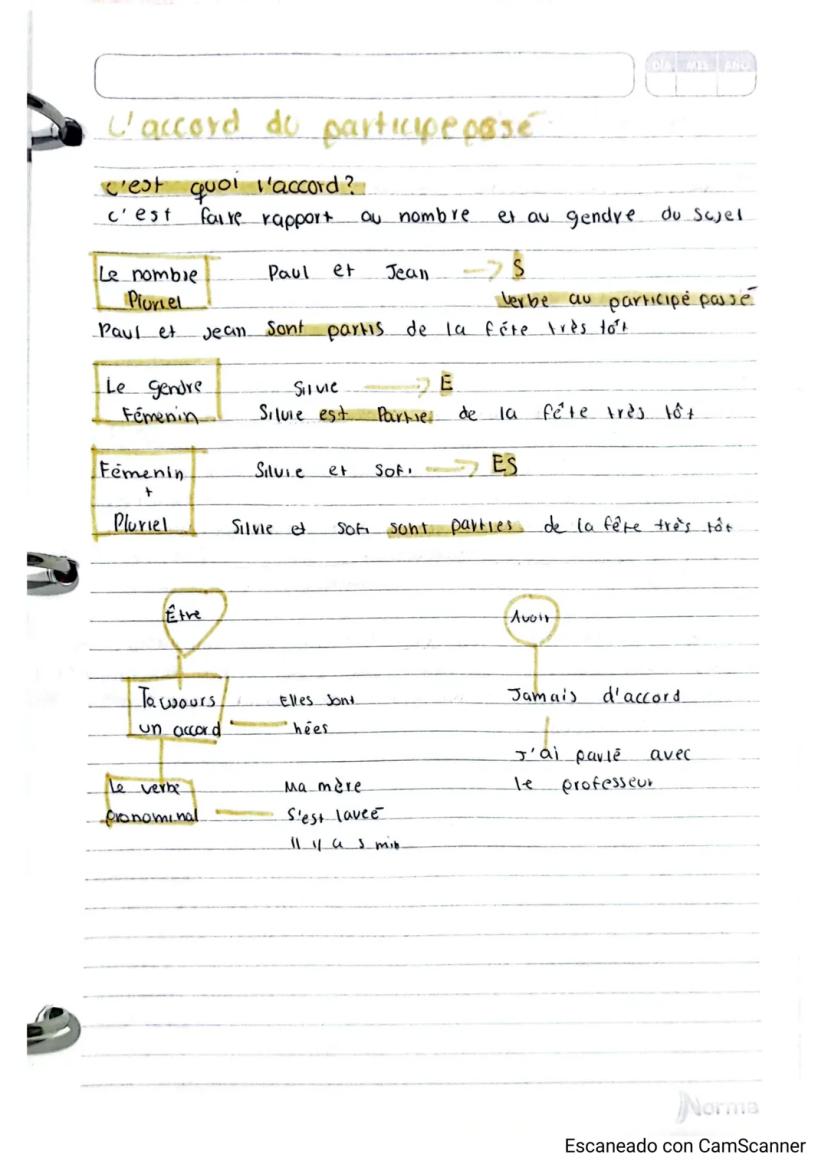 DÍA MES AÑO
L'accord du participe passé
c'est quoi l'accord?
c'est faire rapport au nombre et au gendre du sujet
Le nombre Paul et Jean → S
Pluriel verbe au participé passé
Paul et Jean sont partis de la fête très tôt
Le gendre Silvie → E
Fémenin Silvie est Partie de la fête très tôt
Fémenin Silvie et Sofi → ES
+
Pluriel Silvie et Sofi sont parties de la fête très tôt
Être Avoir
Toujours Elles sont Jamais d'accord
un accord nées
J'ai parlé avec
Le verbe Ma mère le professeur
pronominal s'est lavée
Il y a 5 min
Norma
Escaneado con CamScanner